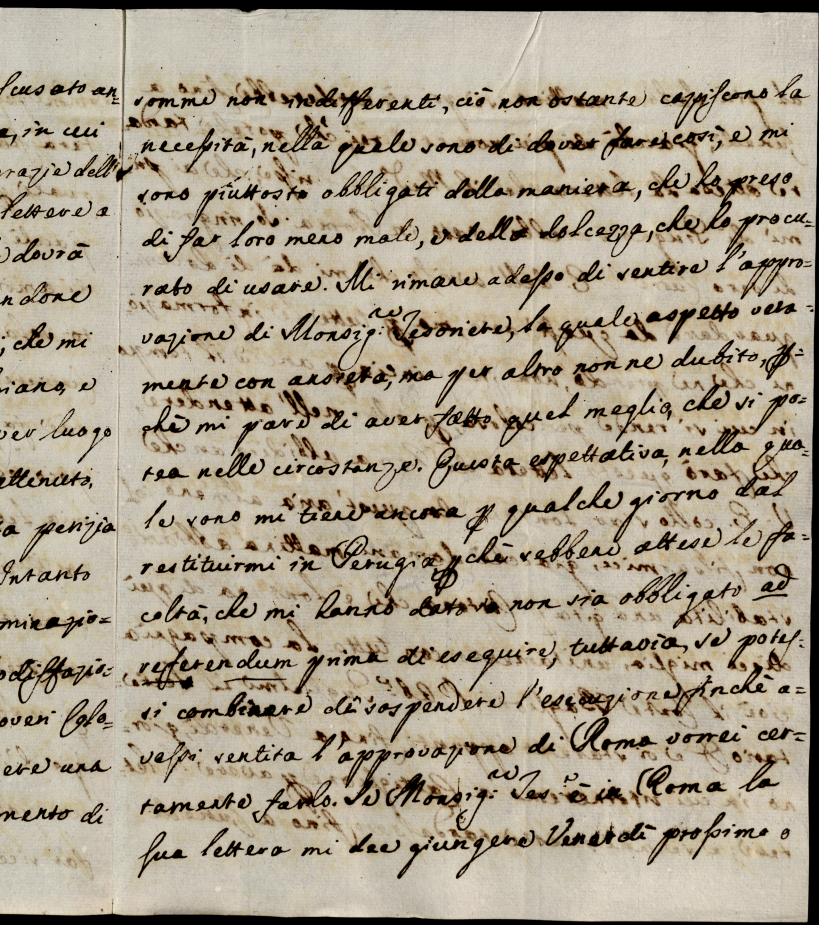 scusato an=
e, in cui
grazie dell'
lettere a
dovrà
ndone
; che mi
iano, e
ver luogo
ottenuto,
a perizia
Intanto
minazio=
odisfazio=
overi Colo=
ere una
mento di
somme non indifferenti, ciò non ostante capiscono la
necessità, nella quale sono di dover fare così, e mi
sono piùttosto obbligati della maniera, che ho preso
di far loro meno male, e della dolcezza, che ho procu=
rato di usare. Mi rimane adesso di sentire l'appro=
vazione di Monsig.re Tesoriere, la quale aspetto vera=
mente con ansietà, ma per altro non ne dubito, p=
chè mi pare di aver fatto quel meglio, che si po=
tea nelle circostanze. Questa espettativa, nella qua=
le sono mi tiene ancora p qualche giorno dal
restituirmi in Perugia, pchè sebbene attese le fa=
coltà, che mi hanno dato non sia obbligato ad
referendum prima di eseguire, tuttavia, se potes=
si combinare di sospendere l'esecuzione finchè a=
vessi sentita l'approvazione di Roma vorrei cer=
tamente farlo. Se Monsig.re Tes.re è in Roma la
sua lettera mi dee giungere Venerdì prossimo o